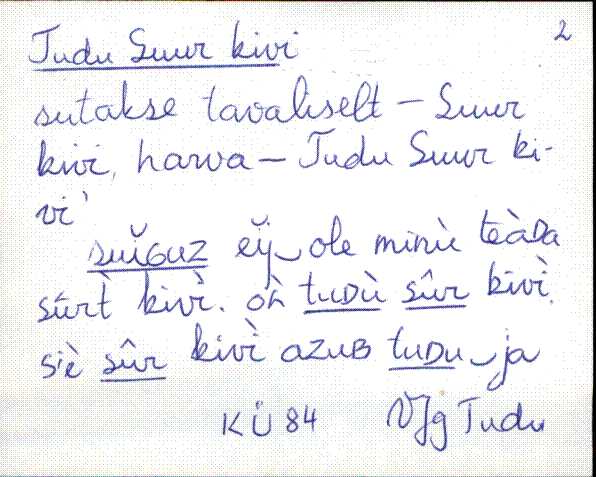 2
Tudu Suur kivi
sutakse tavaliselt – Suur
kivi, harva – Tudu Suur ki-
vi'
suĭɢuz eĭj‿ole minù tèàᴅa
sū́rt̀ kivì. oǹ tuᴅù sûr kivì.
siè sûr kivì azuʙ tuᴅu‿ja
KÜ 84 VJg Tudu